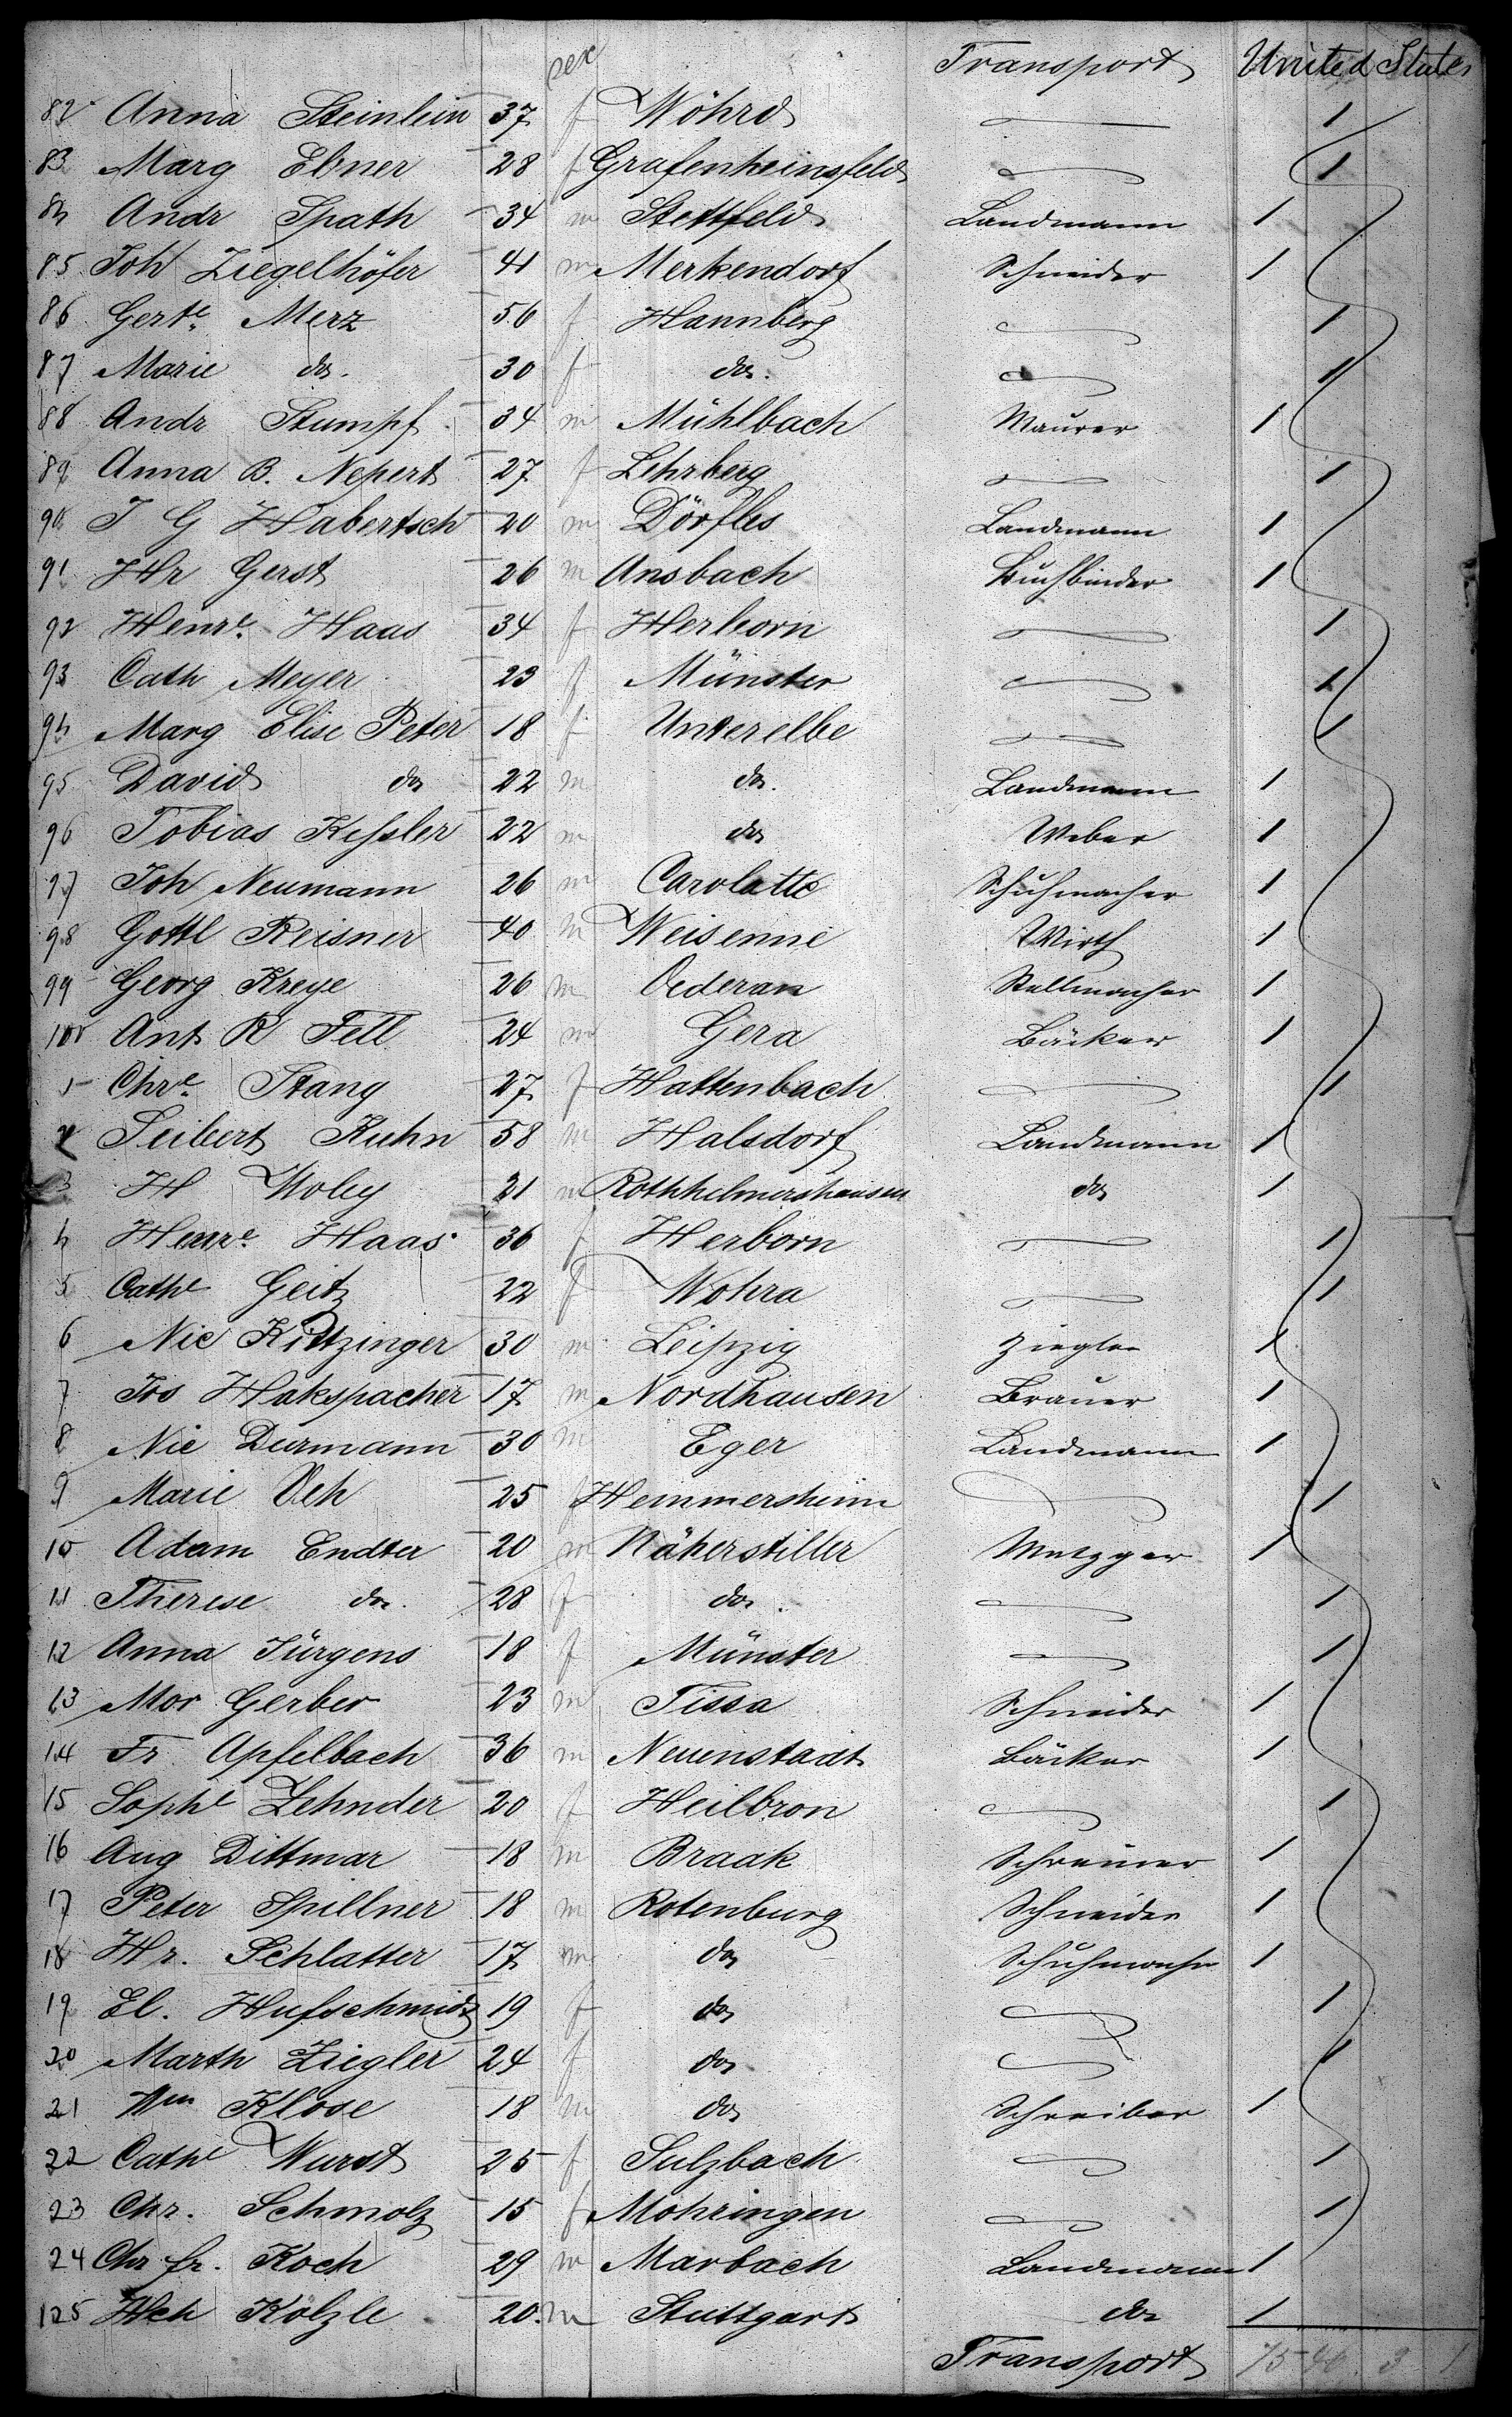 sex Transport United States
82 Anna Steinlein 37 f Wöhrd 1
83 Marg Ebner 28 f Grafenheinsfeld 1
84 Andr Spath 34 m Stettfeld Landmann 1
85 Joh Ziegelhöfer 41 m Merkendorf Schneider 1
86 Gerte Merz 56 f Hannberg 1
87 Marie do. 30 f do. 1
88 Andr Stumpf 34 m Mühlbach Maurer 1
89 Anna B. Nepert 27 f Lehrberg 1
90 J G Habertsch 20 m Dörfles Landmann 1
91 Hr Gerst 26 m Ansbach Buchbinder 1
92 Henre Haas 34 f Herborn 1
93 Cath Meyer 23 f Münster 1
94 Marg Elise Peter 18 f Unterelbe 1
95 David do 22 m do. Landmann 1
96 Tobias Keßler 22 m do Weber 1
97 Joh Neumann 26 m Carolatte Schuhmacher 1
98 Gottl Reisner 40 m Weisenne Wirth 1
99 Georg Kreye 26 m Oederan Stellmacher 1
100 Ant R Tell 24 m Gera Bäcker 1
1 Chre Stang 27 f Hattenbach 1
2 Seibert Kuhn 58 m Halsdorf Landmann 1
3 H Moley 21 m Rothhelmershausen do 1
4 Henre Haas 36 f Herborn 1
5 Cathe Geitz 22 f Wohra 1
6 Nic Kittzinger 30 m Leipzig Ziegler 1
7 Jos Hakspacher 17 m Nordhausen Brauer 1
8 Nic Durmann 30 m Eger Landmann 1
9 Marie Veh 25 f Hemmersheim 1
10 Adam Endter 20 m Näherstiller Metzger 1
11 Therese do. 28 f do. 1
12 Anna Jürgens 18 f Münster 1
13 Mor Gerber 23 m Tissa Schneider 1
14 Fr. Apfelbach 36 m Neuenstadt Bäcker 1
15 Sophe Zehnder 20 f Heilbron 1
16 Aug Dittmar 18 m Braak Schreiner 1
17 Peter Spillner 18 m Rotenburg Schneider 1
18 Hr. Schlatter 17 m do Schuhmacher 1
19 El. Hufschmidt 19 f do 1
20 Marth Ziegler 24 f do 1
21 Wm Klose 18 m do Schreiber 1
22 Cathe Wurst 25 f Sulzbach 1
23 Chr. Schmolz 15 f Mohringen 1
24 Chr fr. Koch 29 m Marbach Landmann 1
125 Hch Kölzle 20 m Stuttgart do 1
Transport 75 46 3 1